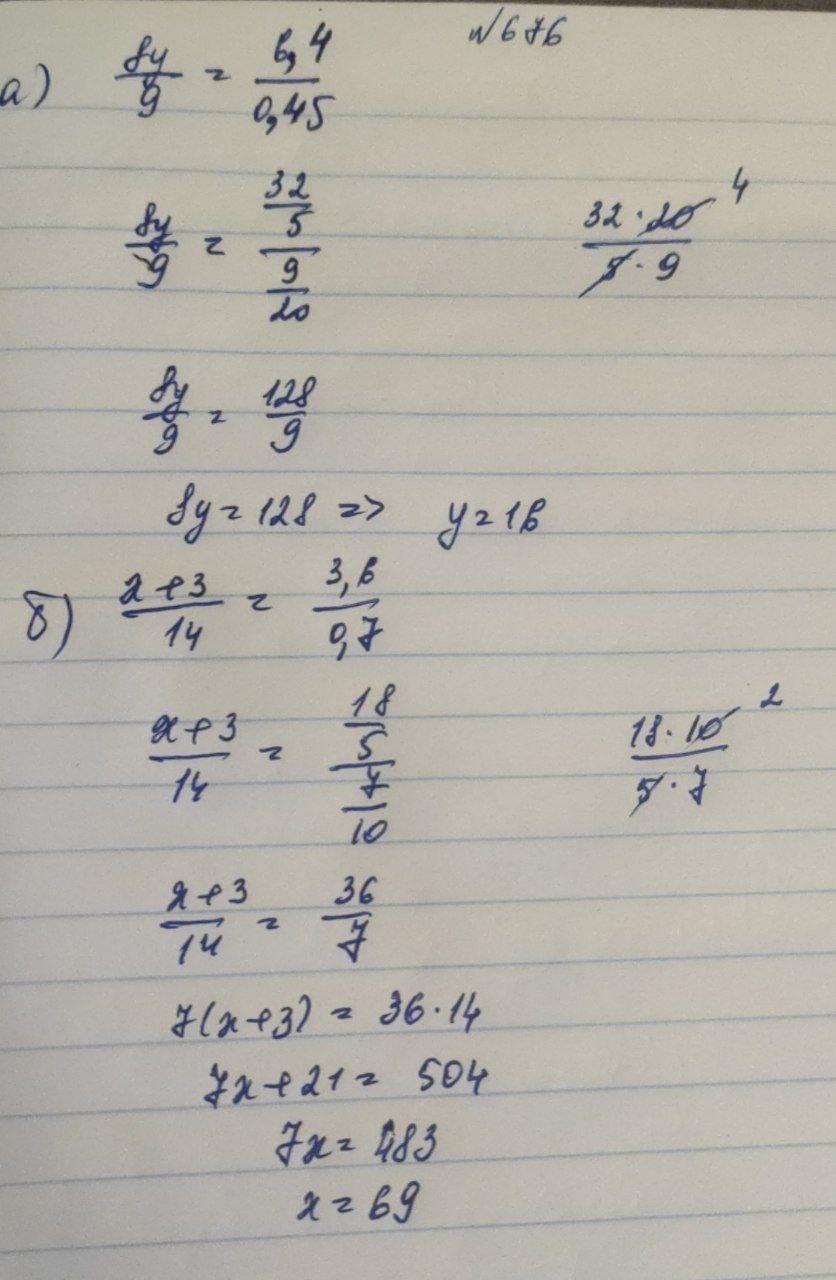 №676
а) 8y/9 = 6,4/0,45
8y/9 = (32/5)/(9/20)    (32·20)/(5·9)    4
8y/9 = 128/9
8y = 128 => y = 16
б) (x+3)/14 = 3,6/0,7
(x+3)/14 = (18/5)/(7/10)    (18·10)/(5·7)    2
(x+3)/14 = 36/7
7(x+3) = 36·14
7x+21 = 504
7x = 483
x = 69